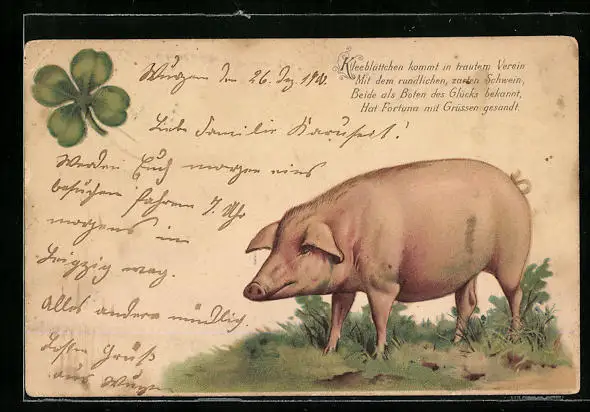 Kleeblättchen kommt in trautem Verein
Mit dem rundlichen, zarten Schwein,
Beide als Boten des Glücks bekannt,
Hat Fortuna mit Grüssen gesandt.
Wurzen den 26. Dez. 1900.
Liebe Familie
Werden Euch morgen
besuchen fahren 7. Uhr
morgens in
Leipzig weg.
Alles andere mündlich.
Besten Gruß
aus Wurzen